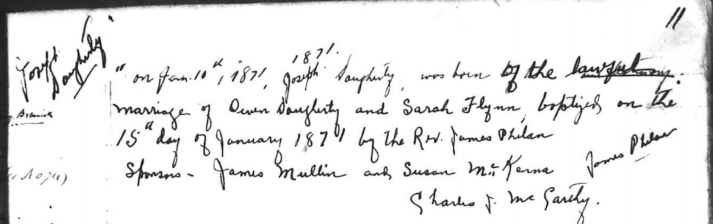 11
"Joseph
Daugherty"
1871.
"on Jan. 10th, 1871, Joseph Daugherty, was born of the lawful
marriage of Owen Daugherty and Sarah Flynn, baptized on the
15th day of January 1871 by the Rev. James Philan
Sponsors - James Mullin and Susan McKerna James Philan
Charles J. McCarthy.